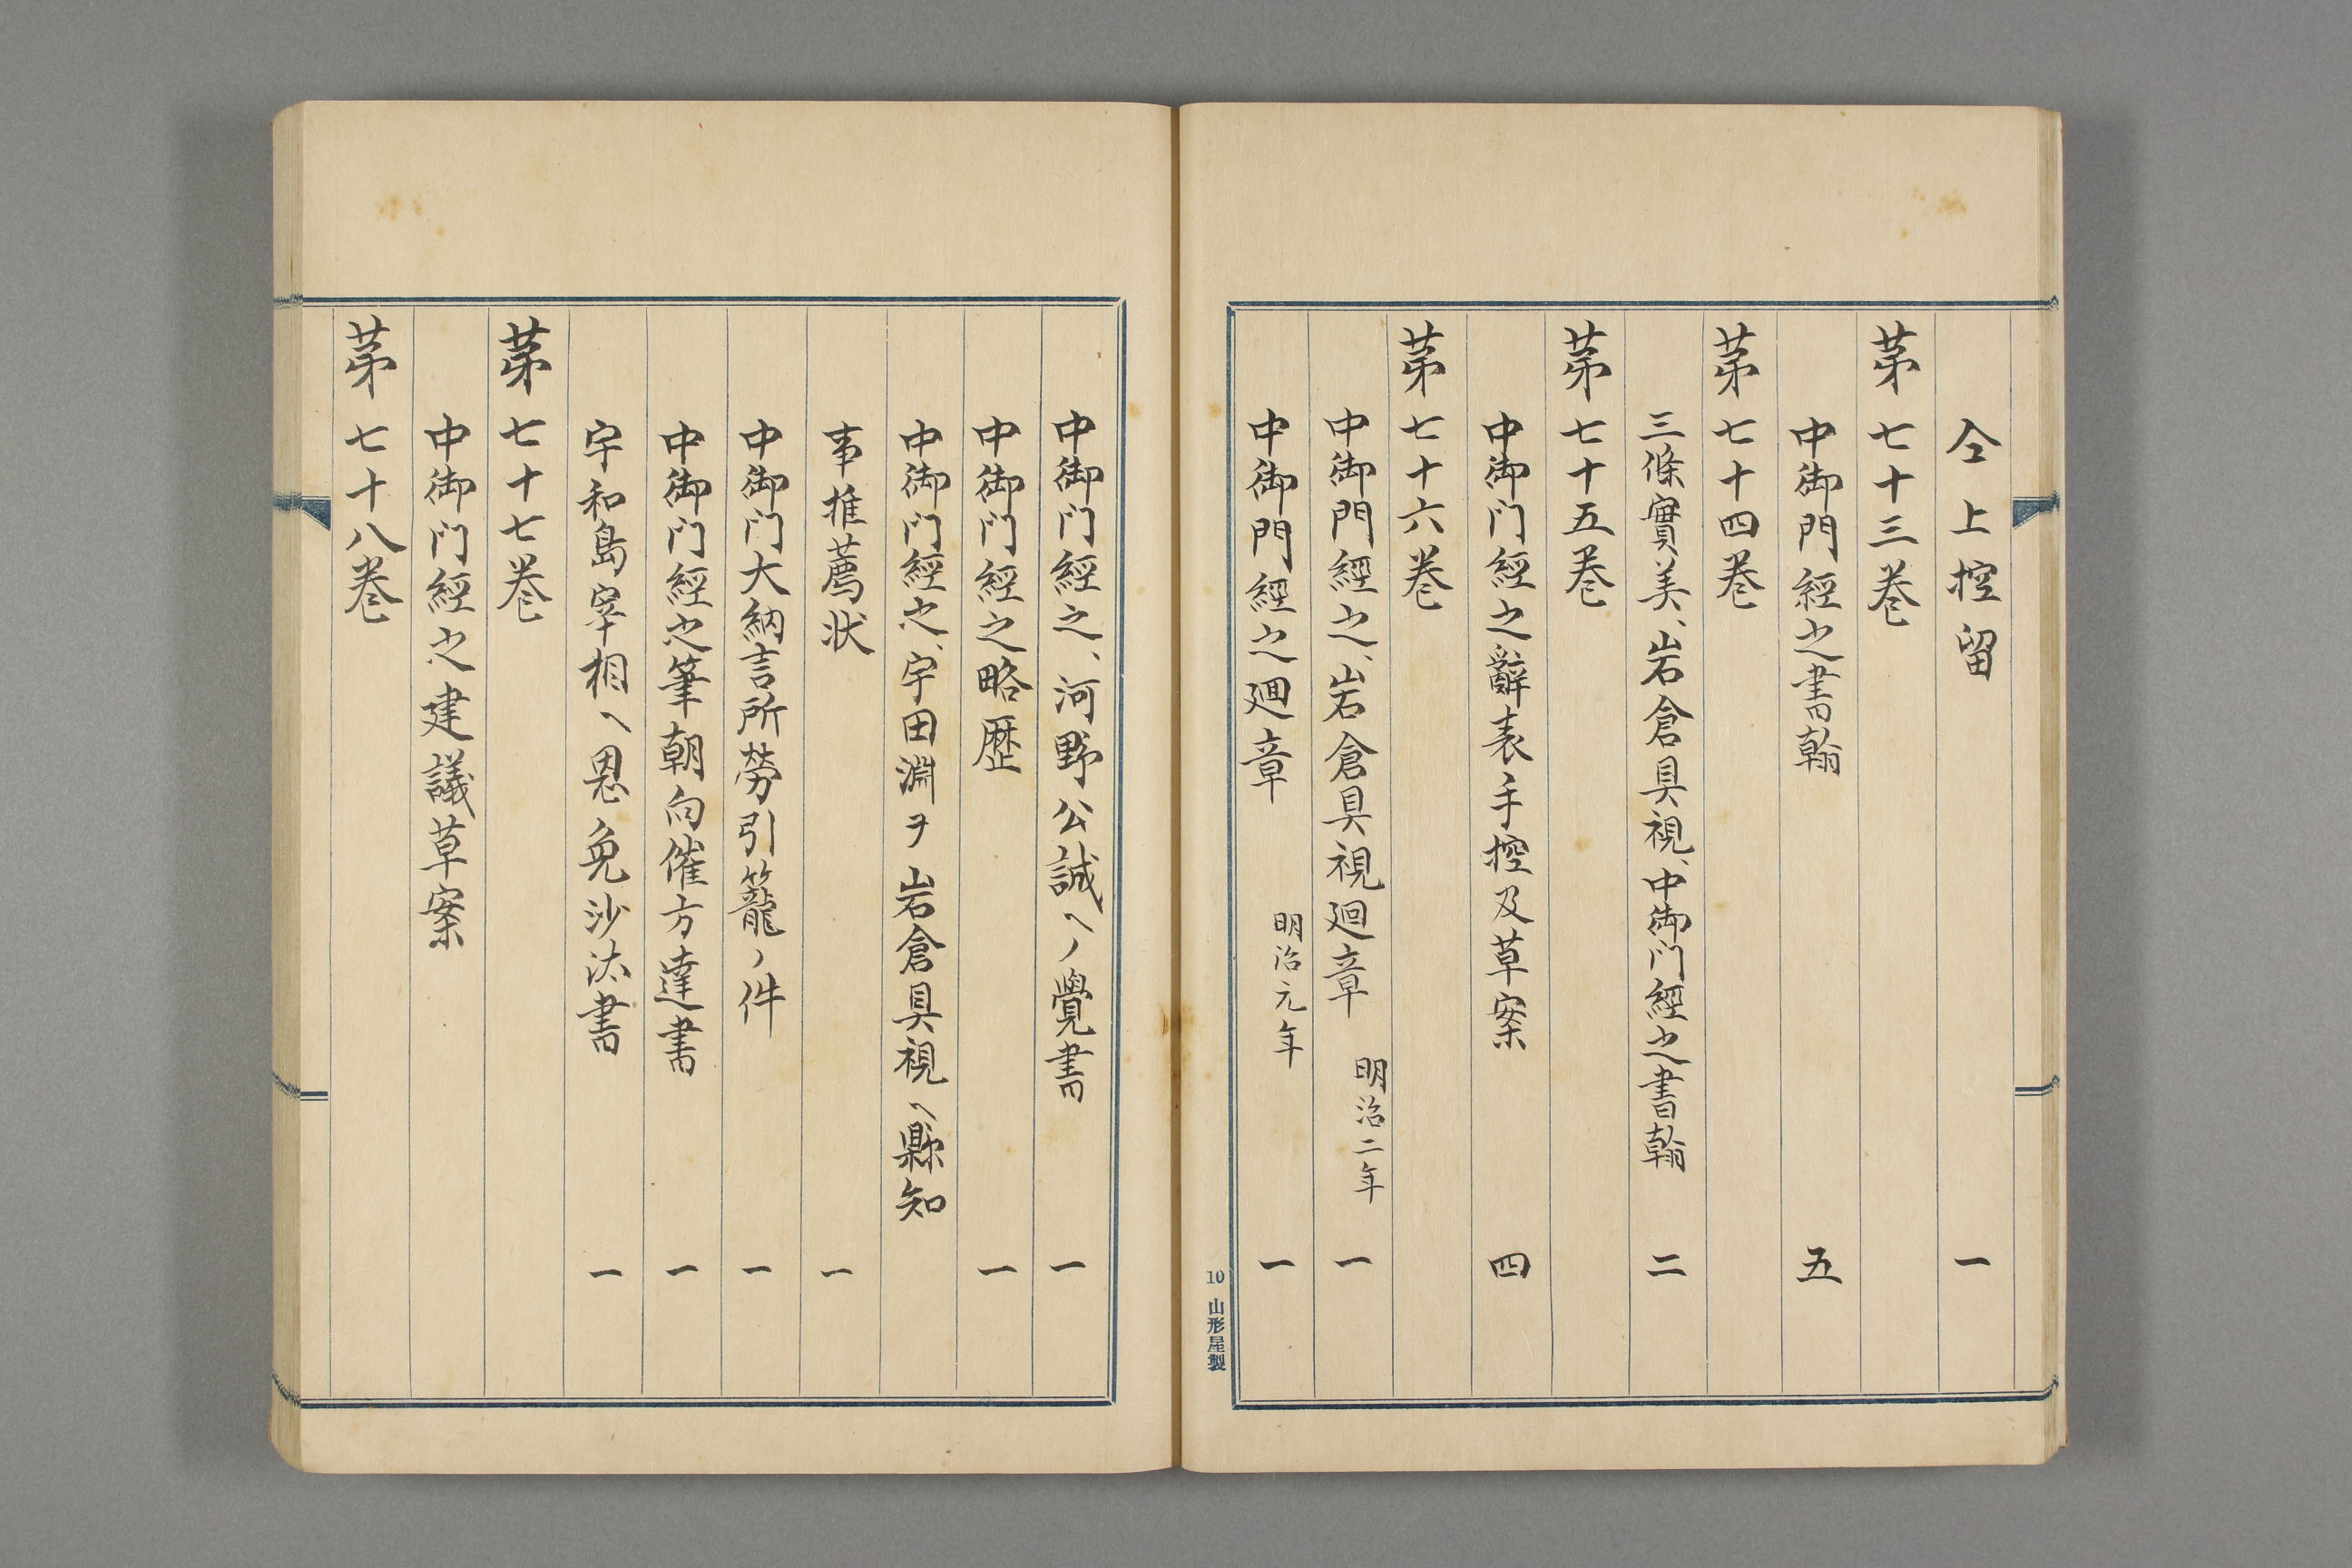 仝上控留 一
第七十三巻
中御門經之書翰 五
第七十四巻
三條實美、岩倉具視、中御门經之書翰 二
第七十五巻
中御门經之辭表手控及草案 四
第七十六巻
中御門經之、岩倉具視廻章 明治二年 一
中御門經之廻章 明治元年 一
10 山形屋製
中御门經之、河野公誠ヘノ覺書 一
中御门經之略歴 一
中御门經之、宇田淵ヲ岩倉具視ヘ縣知
事推薦状 一
中御门大納言所勞引籠ノ件 一
中御门經之筆朝向催方達書 一
宇和島宰相ヘ恩免沙汰書 一
第七十七巻
中御门經之建議草案
第七十八巻